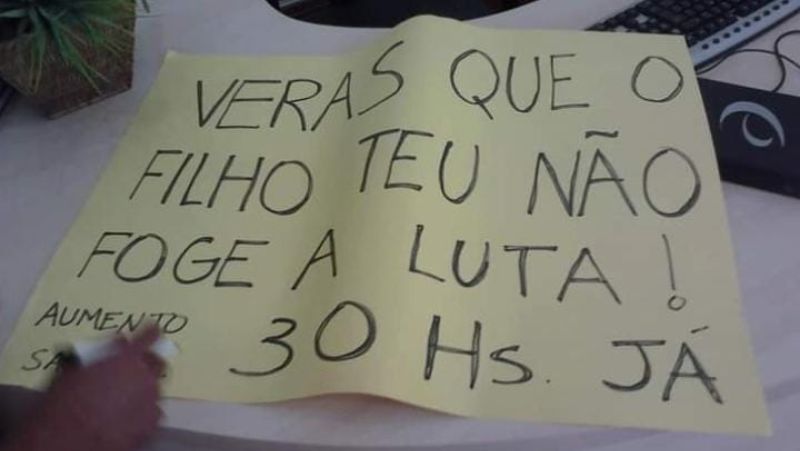 VERAS QUE O
FILHO TEU NÃO
FOGE A LUTA!
AUMENTO
30 Hs. JÁ